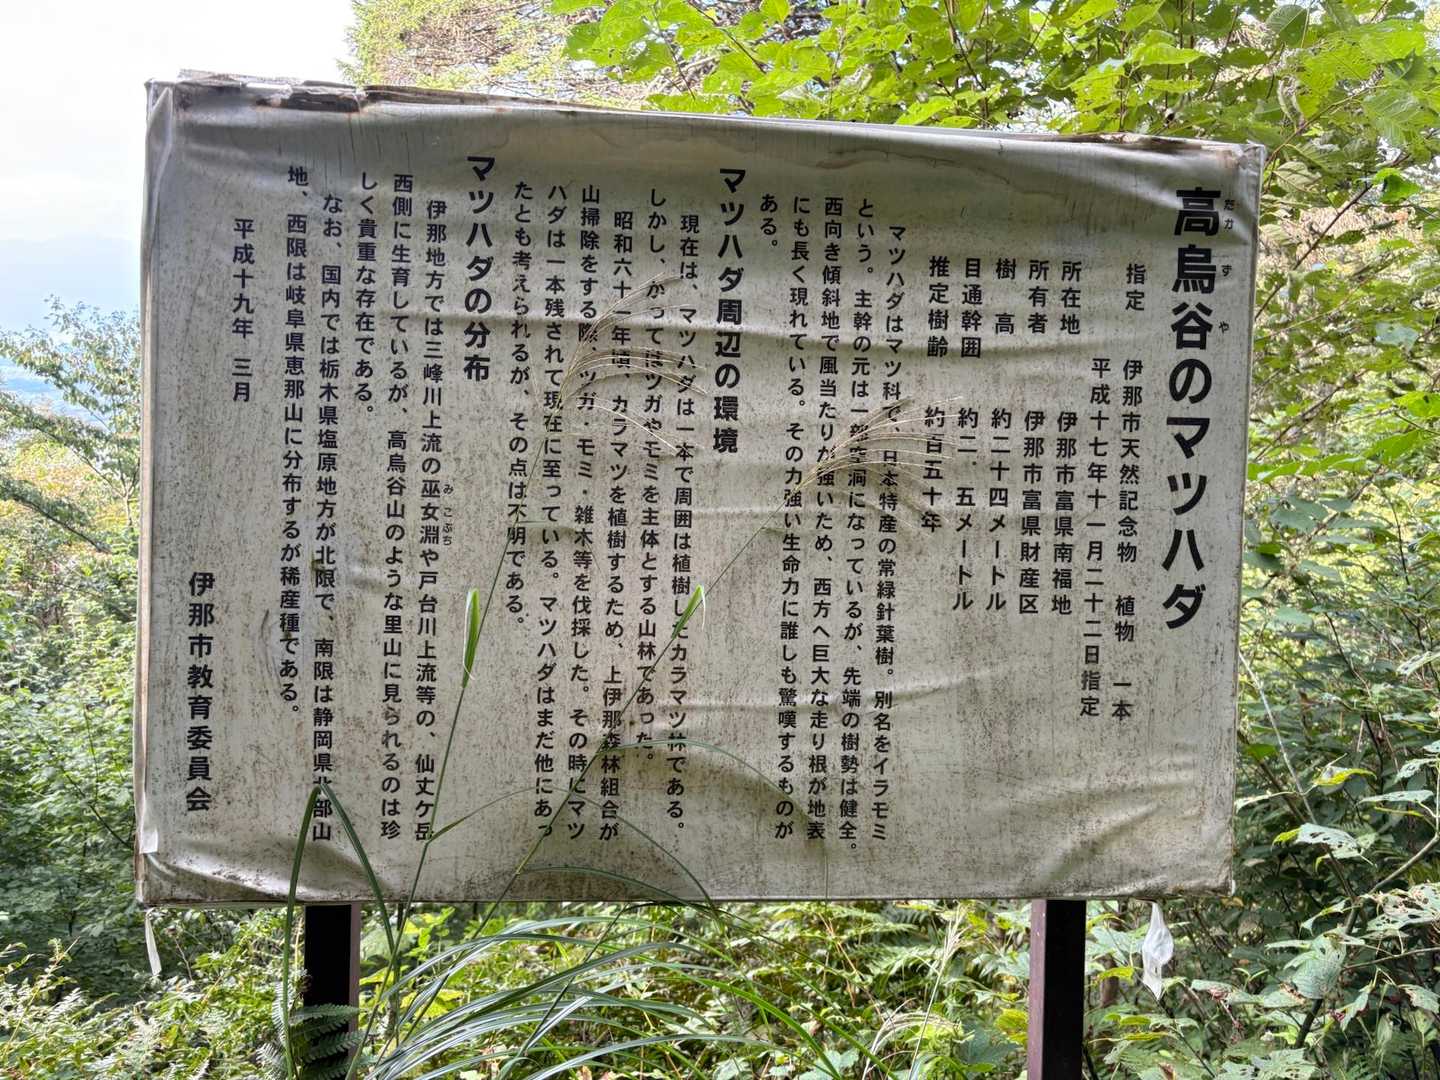 高烏谷のマツハダ
たか ず や
指定 伊那市天然記念物 植物 一本
平成十七年十一月二十二日指定
所在地 伊那市富県南福地
所有者 伊那市富県財産区
樹 高 約二十四メートル
目通幹囲 約二．五メートル
推定樹齢 約百五十年
マツハダはマツ科で、日本特産の常緑針葉樹。別名をイラモミ
という。主幹の元は一部空洞になっているが、先端の樹勢は健全。
西向き傾斜地で風当たりが強いため、西方へ巨大な走り根が地表
にも長く現れている。その力強い生命力に誰しも驚嘆するものが
ある。
マツハダ周辺の環境
現在は、マツハダは一本で周囲は植樹したカラマツ林である。
しかし、かつてはツガやモミを主体とする山林であった。
昭和六十一年頃、カラマツを植樹するため、上伊那森林組合が
山掃除をする際、ツガ・モミ・雑木等を伐採した。その時にマツ
ハダは一本残されて現在に至っている。マツハダはまだ他にあっ
たとも考えられるが、その点は不明である。
マツハダの分布
伊那地方では三峰川上流の巫女淵や戸台川上流等の、仙丈ケ岳
みこぶち
西側に生育しているが、高烏谷山のような里山に見られるのは珍
しく貴重な存在である。
なお、国内では栃木県塩原地方が北限で、南限は静岡県北部山
地、西限は岐阜県恵那山に分布するが稀産種である。
平成十九年 三月
伊那市教育委員会